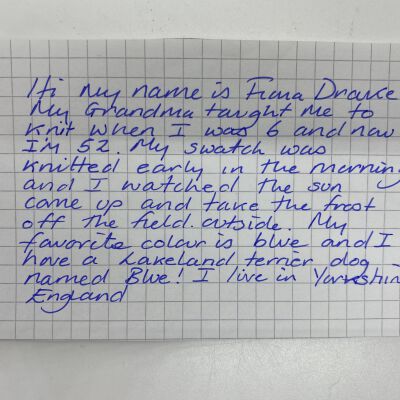 Hi my name is Fiona Drake
My Grandma taught me to
knit when I was 6 and now
I'm 52. My swatch was
knitted early in the morning
and I watched the sun
come up and take the frost
off the field outside. My
favorite colour is blue and I
have a Lakeland terrier dog
named Blue! I live in Yorkshire
England